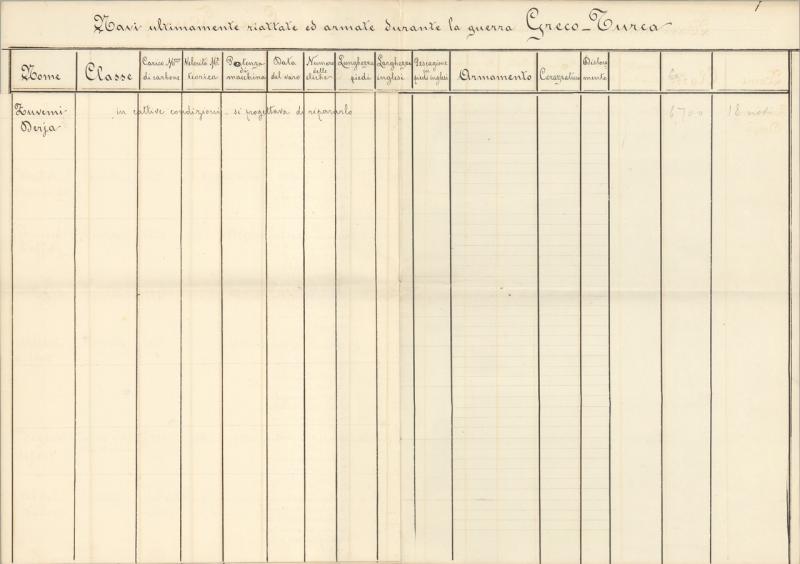 Navi ultimamente riattate ed armate durante la guerra Greco-Turca
Nome
Classe
Carico Mss.
di carbone
Velocità Ms.
teorica
Potenza
di
macchina
Data
del varo
Numero
delle
eliche
Lunghezza
piedi
Larghezza
inglesi
Pescagione
in
piedi inglesi
Armamento
Corazzatura
Disloca
mento
Zuvemi-
Derja
in cattive condizioni - si progettava di ripararlo
6700
18